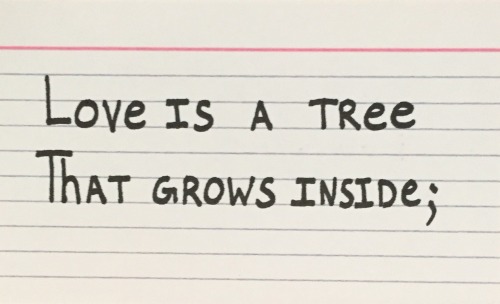 Love is a tree
That grows inside;